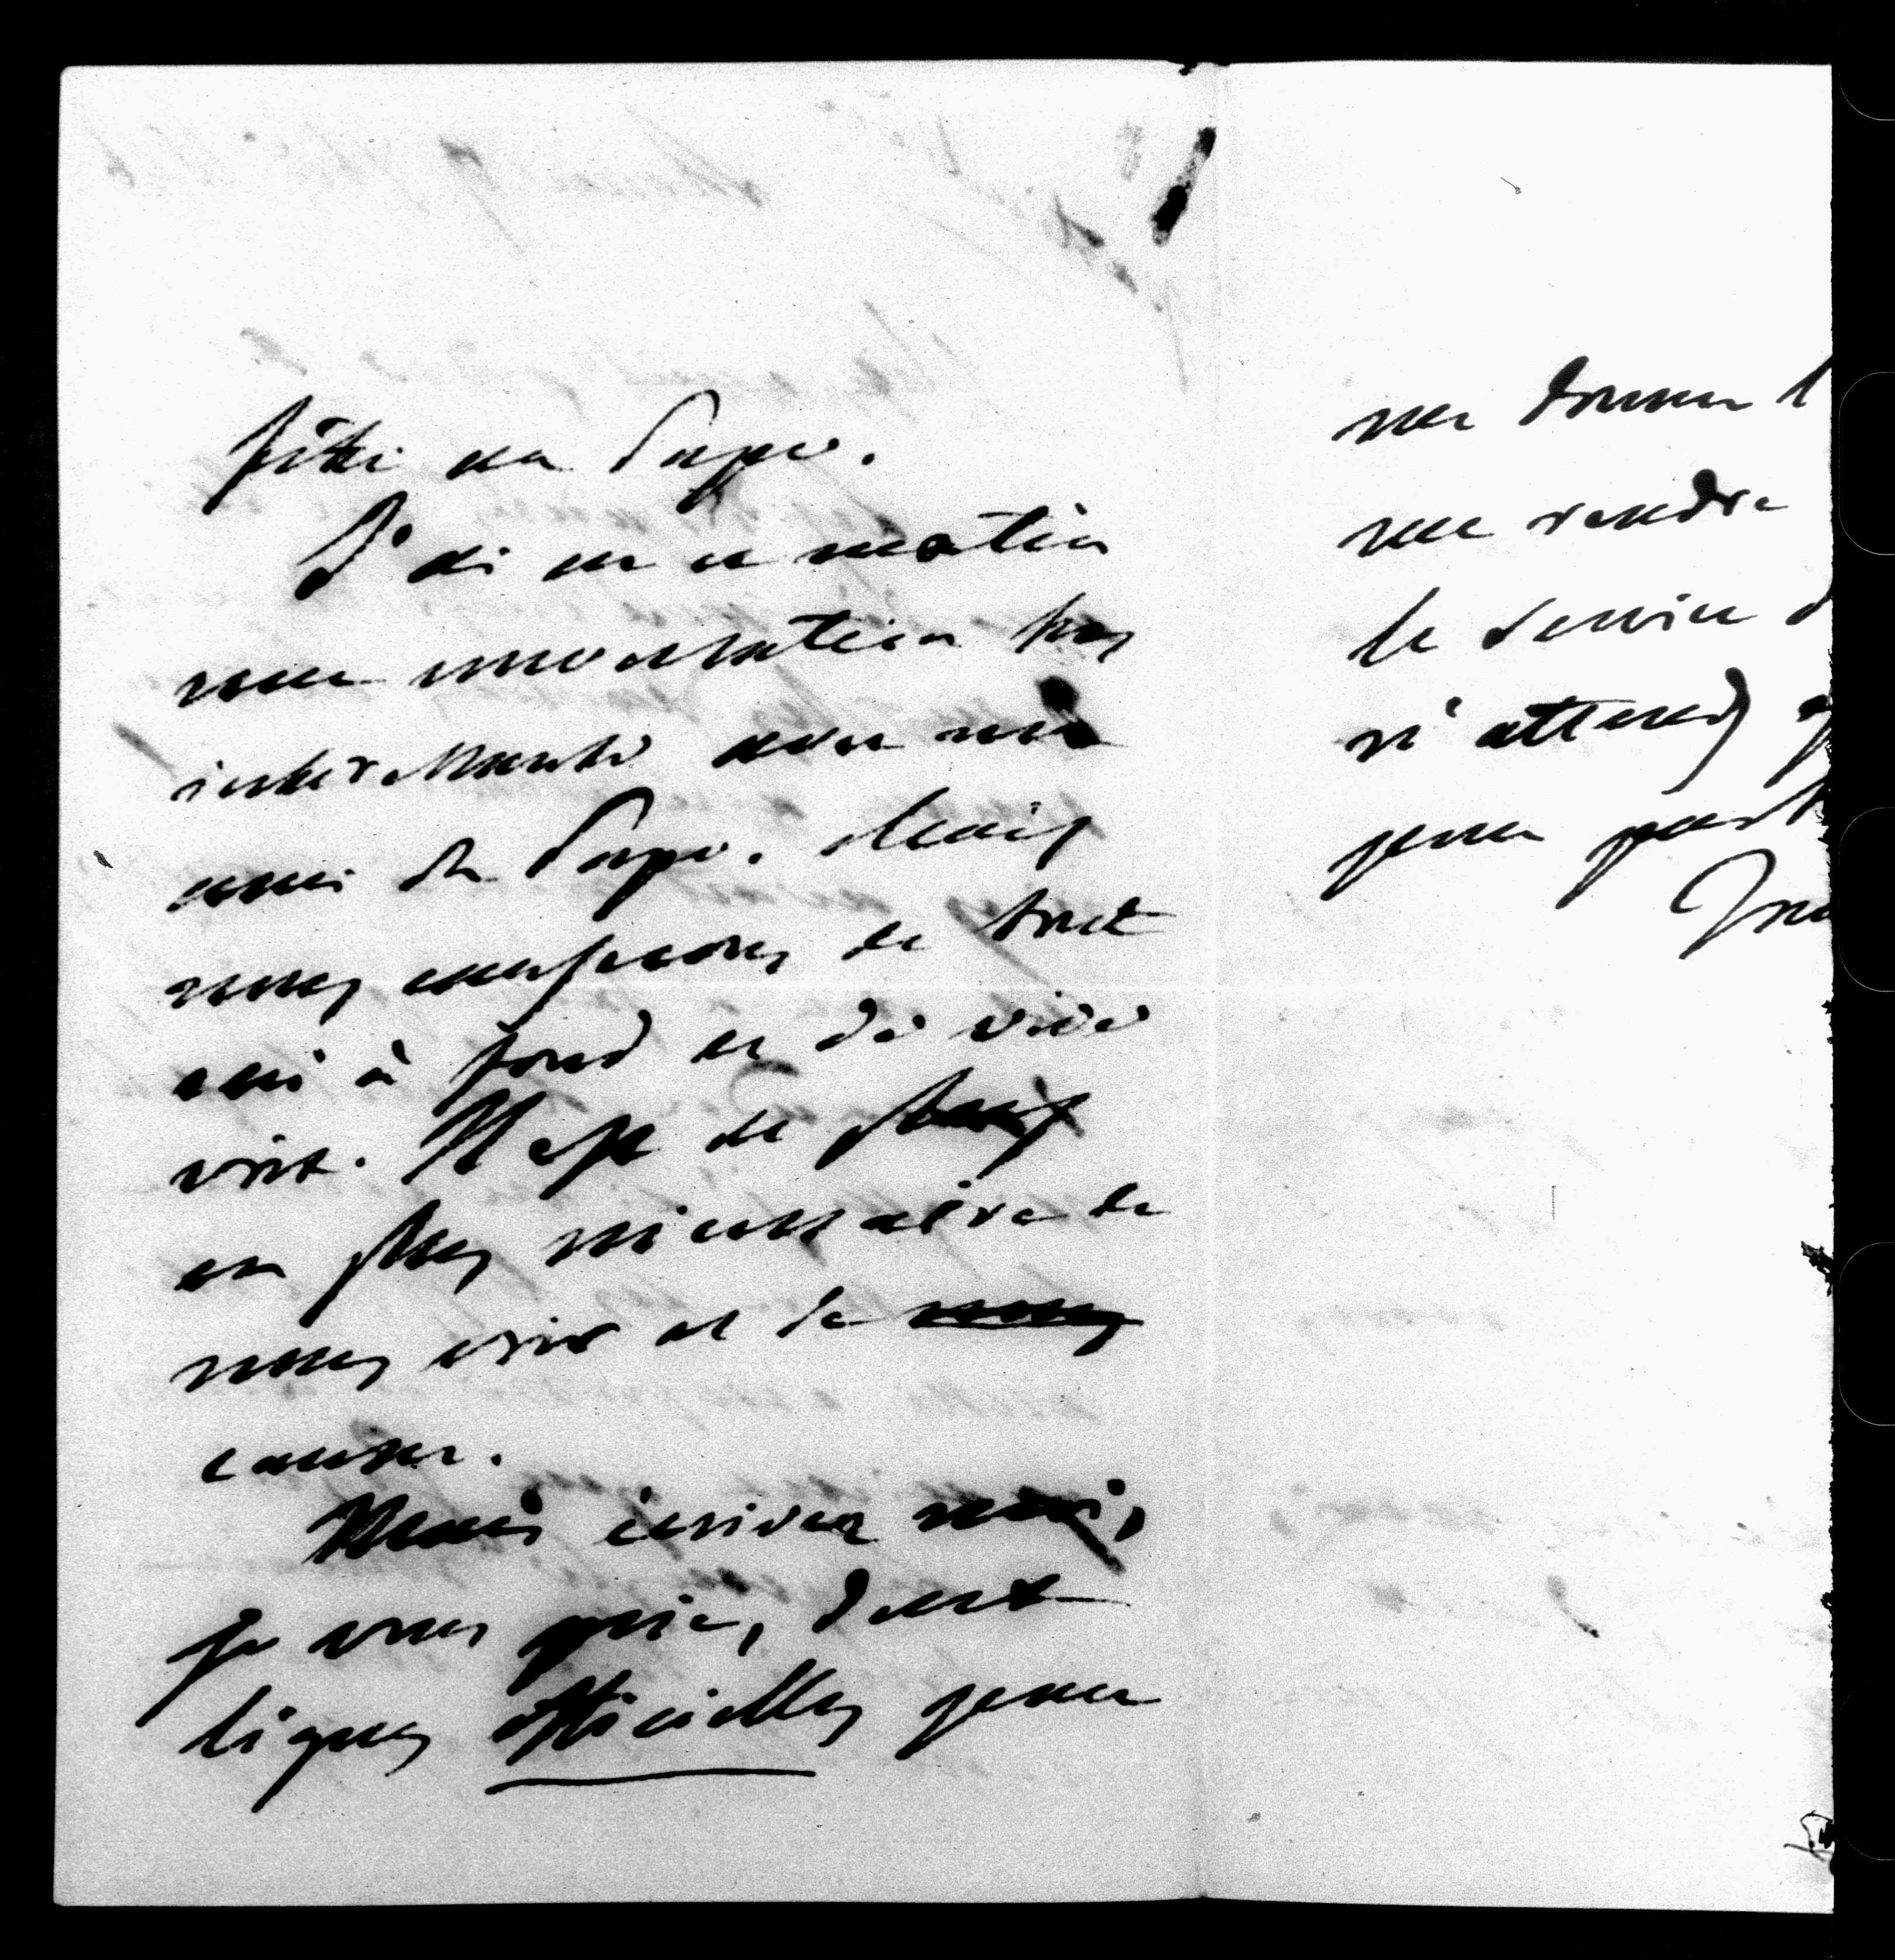 J'ai eu ce matin
une conversation très
intéressante avec un
ami du Pape. Mais
nous causerons de tout
ceci à fond et de vive
voix. Il est de plus
en plus nécessaire de
nous voir et de nous
causer.
Mais écrivez moi,
je vous prie, deux
lignes officielles pour
me donner l
me rendre
le service d
n'attends q
pour part